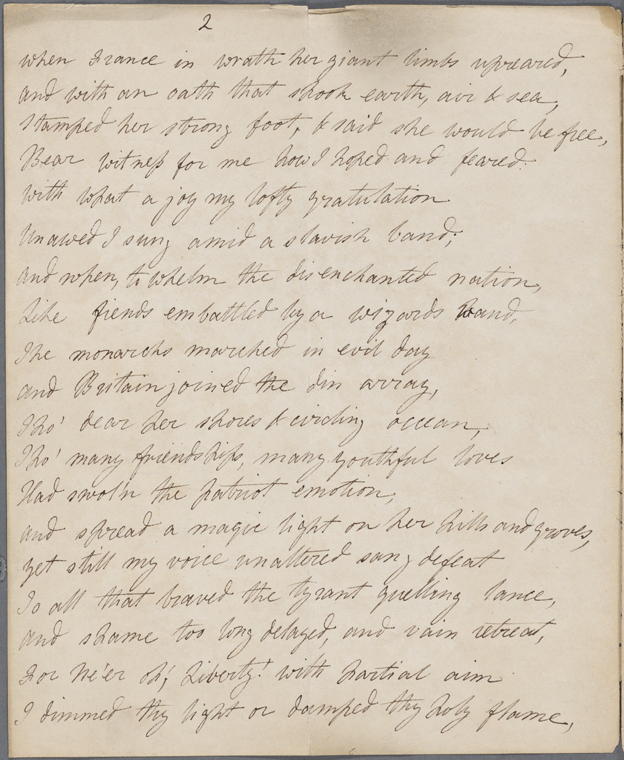 2
when France in wrath her giant limbs upreared,
and with an oath that shook earth, air & sea,
Stamped her strong foot, & said she would be free,
Bear witness for me how I hoped and feared.
With what a joy my lofty gratulation
Unawed I sung amid a slavish band;
and when, to whelm the disenchanted nation,
Like fiends embattled by a wizards wand,
The monarchs marched in evil day
and Britain joined the din array,
Tho' dear her shores & circling occean,
Tho' many friendships, many youthful loves
Had swoln the patriot emotion,
and spread a magic light on her hills and groves,
yet still my voice unaltered sang defeat
To all that braved the tyrant quelling lance,
and shame too long delayed, and vain retreat,
For Ne'er oh', Liberty! with partial aim
I dimmed thy light or damped thy holy flame,